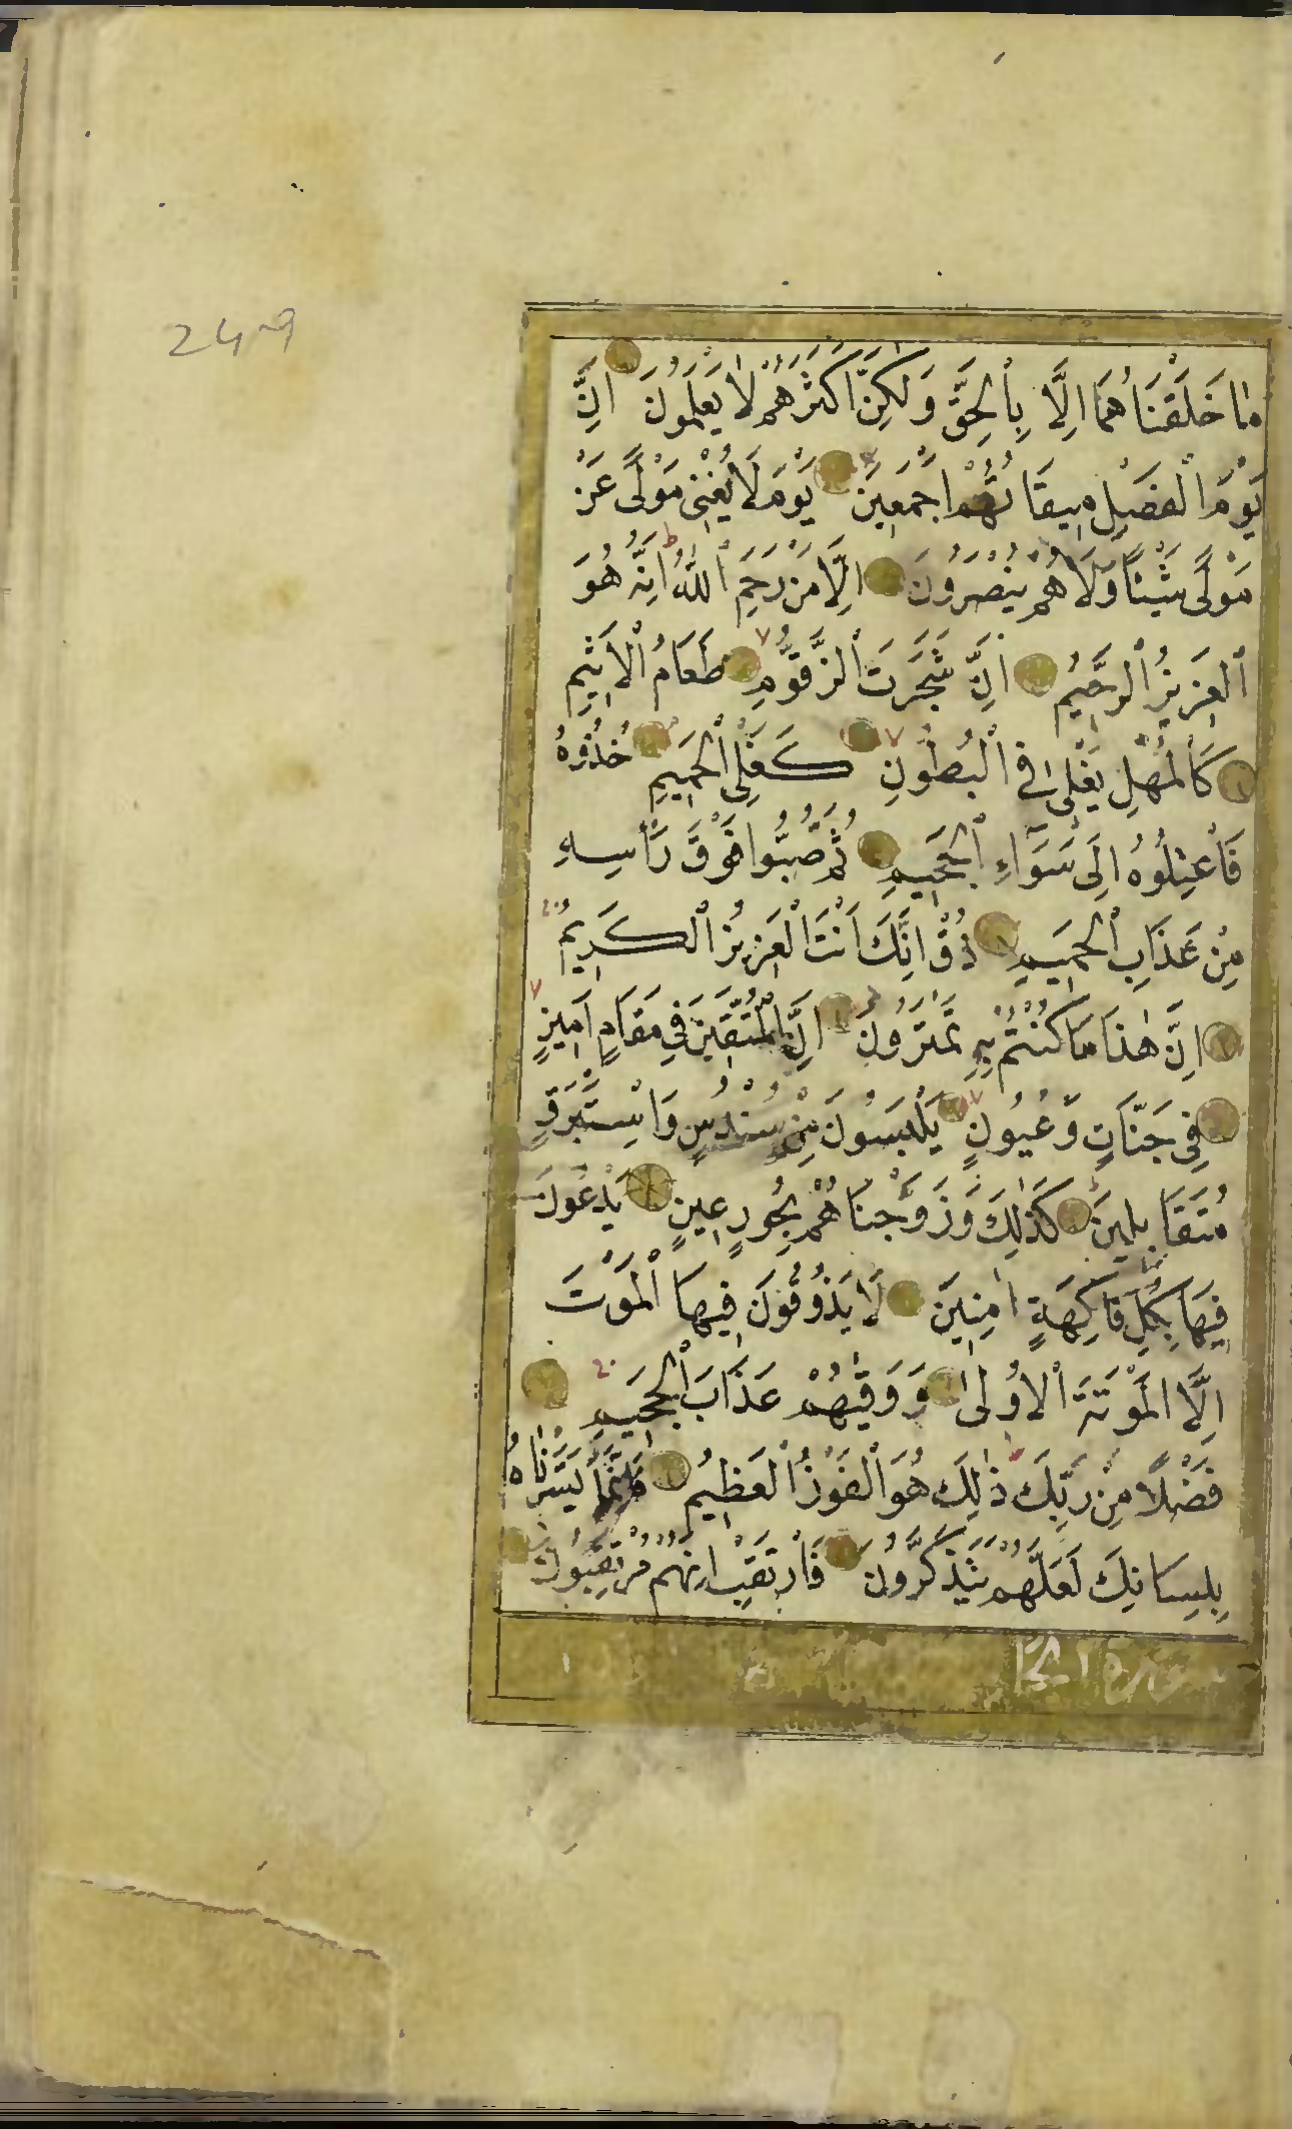 مَا خَلَقْنَاهُمَا اِلَّا بِالْحَقِّ وَلٰكِنَّ اَكْثَرَهُمْ لَا يَعْلَمُونَ اِنَّ
يَوْمَ الْفَصْلِ مِيقَاتُهُمْ اَجْمَعِينَ يَوْمَ لَا يُغْنِى مَوْلًى عَنْ
مَوْلًى شَيْئًا وَلَا هُمْ يُنْصَرُونَ اِلَّا مَنْ رَحِمَ اللّٰهُ ط اِنَّهُ هُوَ
الْعَزِيزُ الرَّحِيمُ اِنَّ شَجَرَتَ الزَّقُّومِ طَعَامُ الْاَثِيمِ
كَالْمُهْلِ يَغْلِى فِى الْبُطُونِ كَغَلْىِ الْحَمِيمِ خُذُوهُ
فَاعْتِلُوهُ اِلٰى سَوَٓاءِ الْجَحِيمِ ثُمَّ صُبُّوا فَوْقَ رَاْسِهِ
مِنْ عَذَابِ الْحَمِيمِ ذُقْ اِنَّكَ اَنْتَ الْعَزِيزُ الْكَرِيمُ
اِنَّ هٰذَا مَا كُنْتُمْ بِهِ تَمْتَرُونَ اِنَّ الْمُتَّقِينَ فِى مَقَامٍ اَمِينٍ
فِى جَنَّاتٍ وَعُيُونٍ يَلْبَسُونَ مِنْ سُنْدُسٍ وَاِسْتَبْرَقٍ
مُتَقَابِلِينَ كَذٰلِكَ وَزَوَّجْنَاهُمْ بِحُورٍ عِينٍ يَدْعُونَ
فِيهَا بِكُلِّ فَاكِهَةٍ اٰمِنِينَ لَا يَذُوقُونَ فِيهَا الْمَوْتَ
اِلَّا الْمَوْتَةَ الْاُولٰى وَوَقٰيهُمْ عَذَابَ الْجَحِيمِ
فَضْلًا مِنْ رَبِّكَ ذٰلِكَ هُوَ الْفَوْزُ الْعَظِيمُ فَاِنَّمَا يَسَّرْنَاهُ
بِلِسَانِكَ لَعَلَّهُمْ يَتَذَكَّرُونَ فَارْتَقِبْ اِنَّهُمْ مُرْتَقِبُونَ
سورة الجا